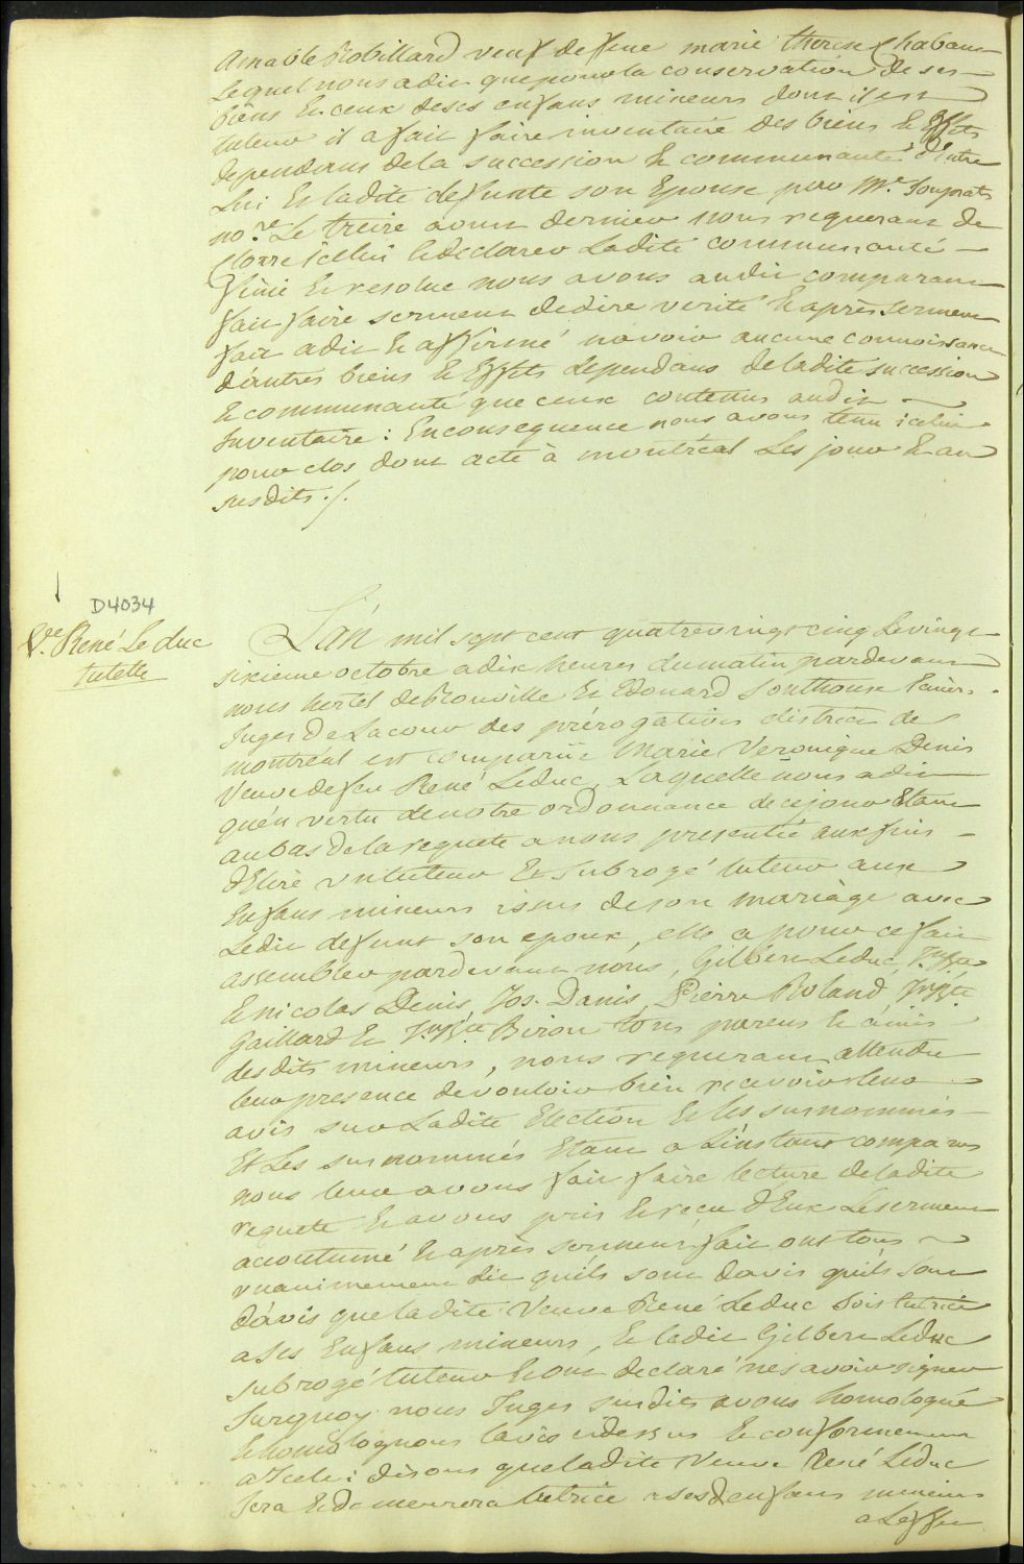 amable Robillard veuf de feue marie therese Chabau
Lequel nous a dit que pour la conservation de ses
biens et ceux de ses enfans mineurs dont il est
tuteur il a fait faire inventaire des biens et Effets
dependans de la succession et communauté d'Entre
Lui et ladite defunte son Epouse par Me. Souprats
nore. Le treize aoust dernier nous requerant de
Clorre icellui et declarer Ladite communauté
finie et resolue nous avons audit comparant
fait faire serment de dire verité et après serment
fait a dit et affirmé n'avoir aucune connoissance
d'autres biens et Effets dependans de ladite succession
et communauté que ceux contenus audit
Inventaire : En consequence nous avons tenu icelui
pour clos dont acte à montréal Les jour et an
susdits ./.
D4034
Ve. René Le duc
tutelle
L'an mil sept cent quatrevingt cinq Le vingt
sixieme octobre a dix heures du matin pardevant
nous hertel de Rouville et Edouard Southouse Ecuiers
Juges de La cour des prérogatives district de
montréal est comparüe Marie Veronique Denis
Veuve de feu René Leduc, Laquelle nous a dit
qu'en vertu de notre ordonnance de ce jour Etant
au bas de la requete a nous presentée aux fins
d'Elire un tuteur et subrogé tuteur aux
Enfans mineurs issus de son mariage avec
Ledit defunt son epoux, elle a pour ce fait
assembler pardevant nous, Gilbert Leduc,
et nicolas Denis, Jos. Danis, Pierre Roland,
Gaillard et J. Bte. Biron tous parens et amis
desdits mineurs, nous requerant attendu
leur presence de vouloir bien recevoir leur
avis sur Ladite Election et les surnommés
Et Les surnommés Etant a L'instant comparus
nous leur avons fait faire lecture de ladite
requete et avons pris et reçu d'Eux Le serment
acoutumé et après serment fait ont tous
unanimement dit qu'ils sont d'avis qu'ils sont
d'avis que ladite Veuve René Leduc soit tutrice
a ses Enfans mineurs, et ledit Gilbert Leduc
subrogé tuteur et ont declaré ne savoir signer
Surquoy nous Juges susdits avons homologué
et homologuons l'avis cidessus et conformement
a Icelui disons que ladite Veuve René Leduc
sera et demeurera tutrice a sesd enfans mineurs
a Leffet